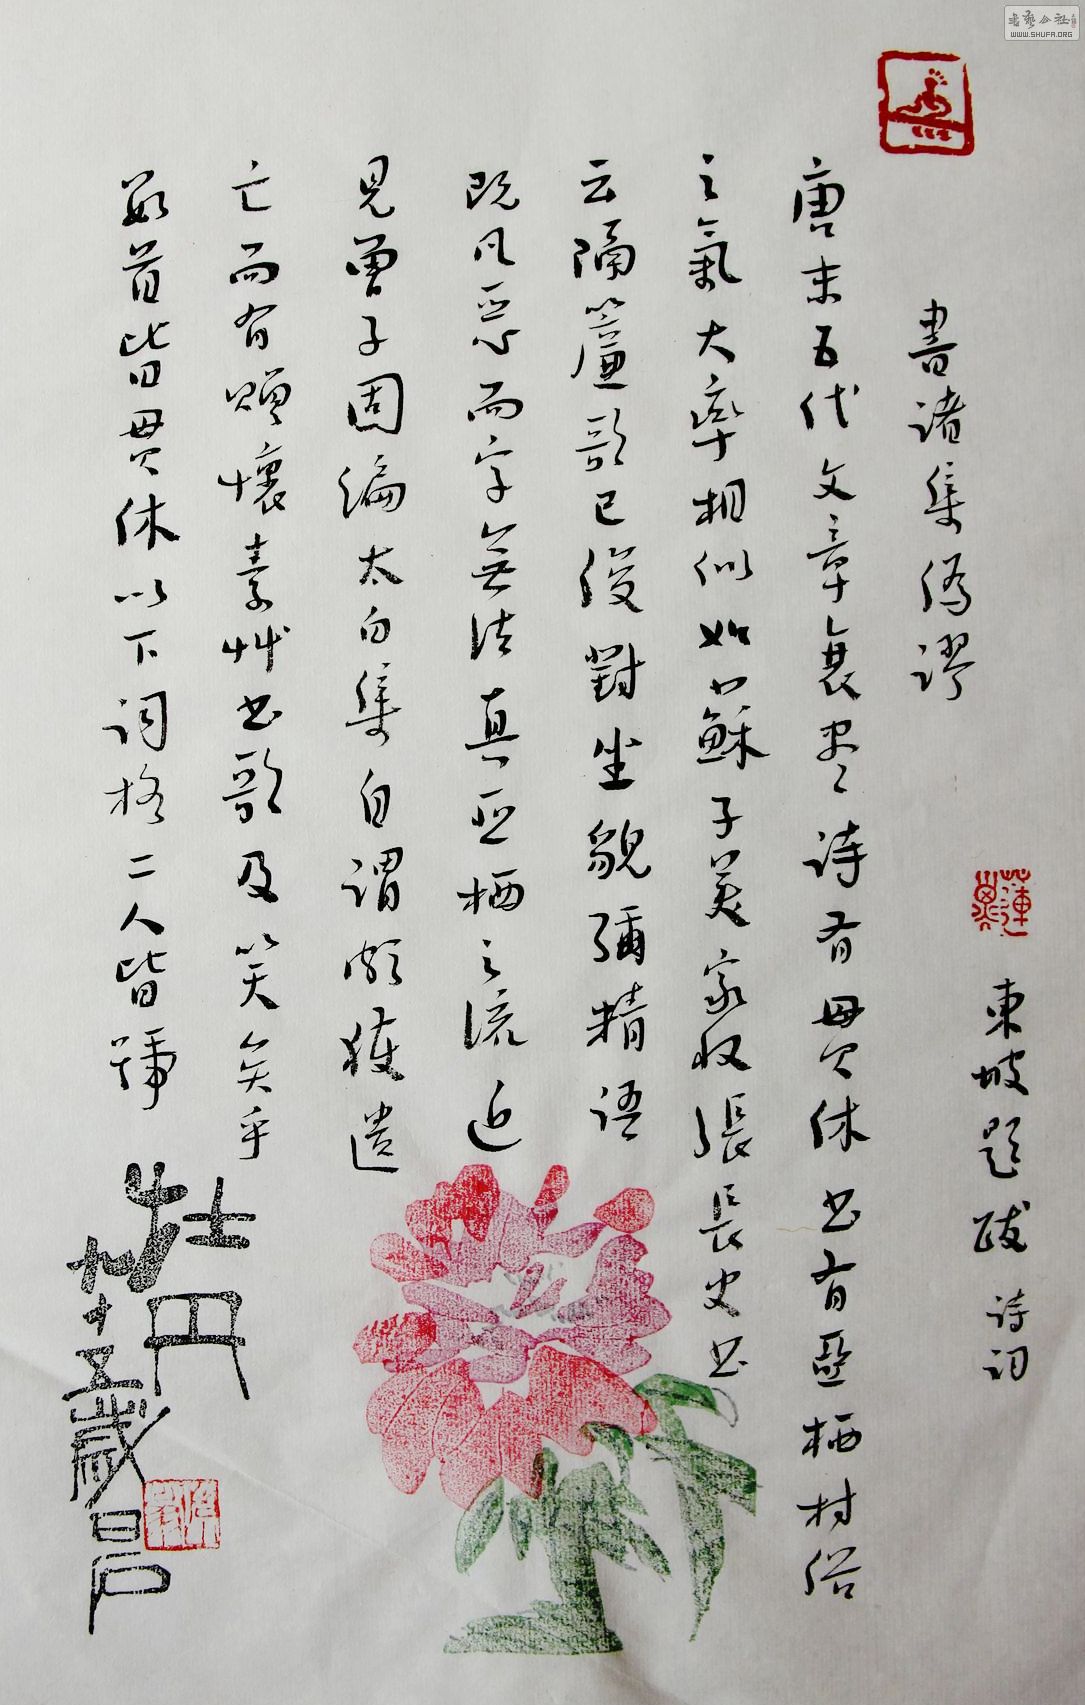 東坡題跋 詩詞
書諸集偽謬
唐末五代文章衰尽詩有貫休书有亞栖村俗
之氣大率相似如蘇子美家收張長史书
云隔簾歌已俊對坐貌彌精語
既凡惡而字無法真亞栖之流近
見曾子固編太白集自謂頗獲遺
亡而有贈懷素艸书歌及笑矣乎
數首皆貫休以下詞格二人皆號
牡丹
九十五歲昌
書藝公社
WWW.SHUFA.ORG